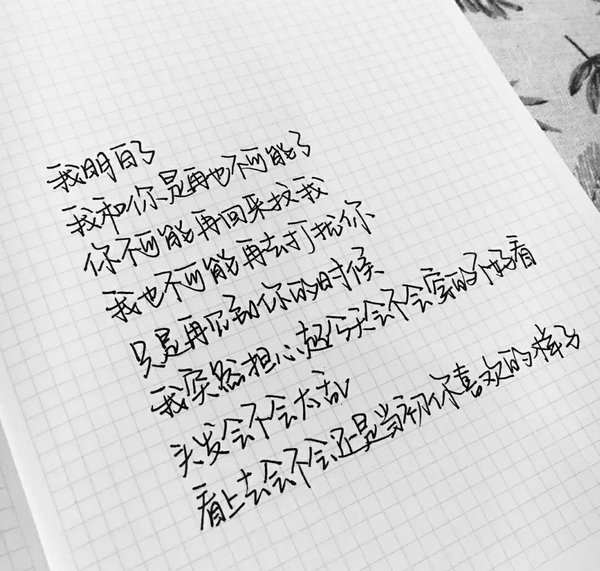 我明白了
我和你是再也不可能了
你不可能再回来找我
我也不可能再去打扰你
只是再见到你的时候
我突然担心起今天会不会穿的不好看
头发会不会太乱
看上去会不会还是当初你喜欢的样子